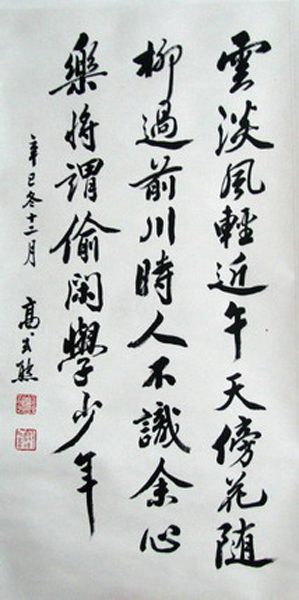 雲淡風輕近午天傍花随
柳過前川時人不識余心
樂将謂偷閑學少年
辛巳冬十二月
高式熊